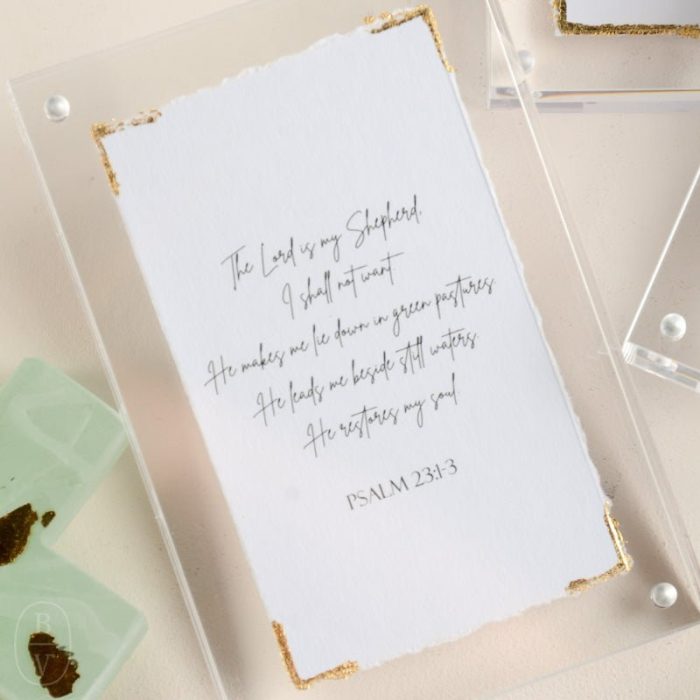 The Lord is my Shepherd,
I shall not want
He makes me lie down in green pastures
He leads me beside still waters
He restores my soul
PSALM 23:1-3
B
V